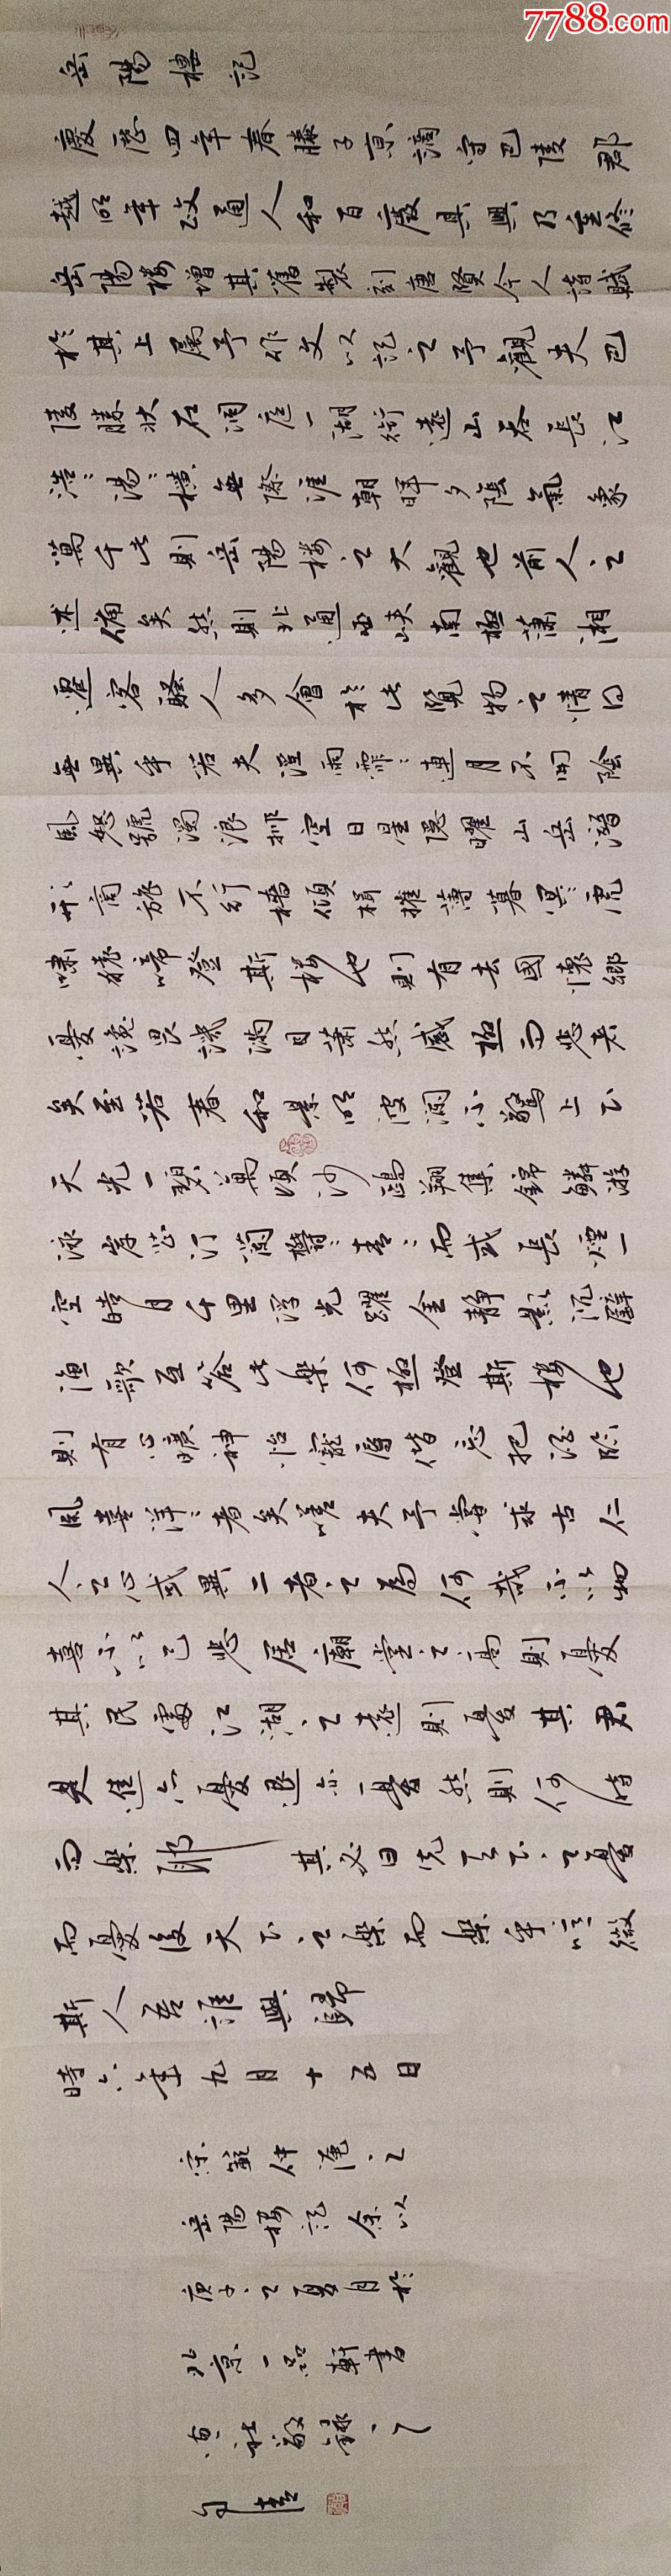 7788.com
岳陽樓記
慶歷四年春滕子京謫守巴陵郡
越明年政通人和百廢具興乃重修
岳陽樓增其舊製刻唐賢今人詩賦
於其上屬予作文以記之予觀夫巴
陵勝狀在洞庭一湖銜遠山吞長江
浩浩湯湯橫無際涯朝暉夕陰氣象
萬千此則岳陽樓之大觀也前人之
述備矣然則北通巫峽南極瀟湘
遷客騷人多會於此覽物之情得
無異乎若夫淫雨霏霏連月不開陰
風怒號濁浪排空日星隱曜山岳潛
形商旅不行檣傾楫摧薄暮冥冥虎
嘯猿啼登斯樓也則有去國懷鄉
憂讒畏譏滿目蕭然感極而悲者
矣至若春和景明波瀾不驚上下
天光一碧萬頃沙鷗翔集錦鱗游
泳岸芷汀蘭鬱鬱青青而或長煙一
空皓月千里浮光躍金靜影沉璧
漁歌互答此樂何極登斯樓也
則有心曠神怡寵辱偕忘把酒臨
風喜洋洋者矣嗟夫予嘗求古仁
人之心或異二者之為何哉不以物
喜不以己悲居廟堂之高則憂
其民處江湖之遠則憂其君
是進亦憂退亦憂然則何時
而樂耶其必曰先天下之憂
而憂後天下之樂而樂乎噫微
斯人吾誰與歸
時六年九月十五日
宋範仲淹之
岳陽樓記余以
庚子之夏月於
北京一品軒書
敬錄之